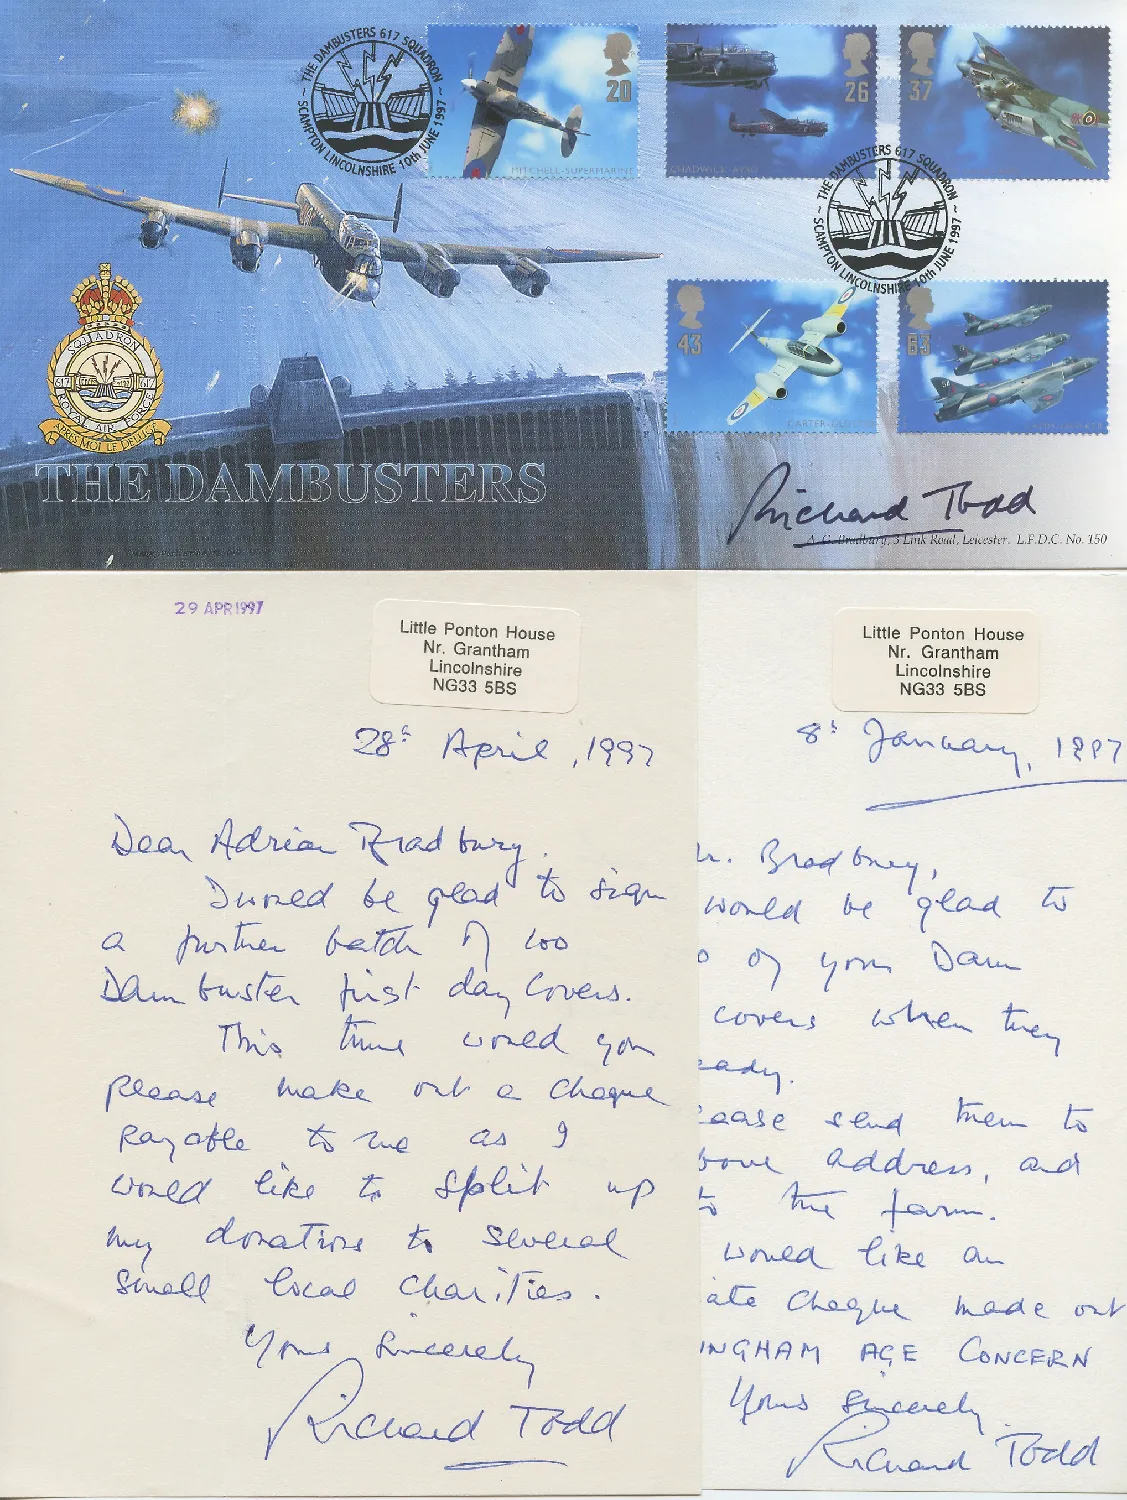 THE DAMBUSTERS 617 SQUADRON
SCAMPTON LINCOLNSHIRE 10th JUNE 1997
20
MITCHELL-SUPERMARINE
26
CHADWICK-AVRO
37
THE DAMBUSTERS 617 SQUADRON
SCAMPTON LINCOLNSHIRE 10th JUNE 1997
43
63
SQUADRON
617 617
ROYAL AIR FORCE
APRÈS MOI LE DELUGE
THE DAMBUSTERS
Richard Todd
A. G. Bradbury, 3 Link Road, Leicester. L.F.D.C. No. 150
29 APR 1997
Little Ponton House
Nr. Grantham
Lincolnshire
NG33 5BS
28th April, 1997
Dear Adrian Bradbury.
I would be glad to sign
a further batch of 100
Dambuster first day covers.
This time would you
please make out a cheque
payable to me as I
would like to split up
my donations to several
small local charities.
Yours sincerely
Richard Todd
Little Ponton House
Nr. Grantham
Lincolnshire
NG33 5BS
8th January, 1997
r. Bradbury,
would be glad to
o of your Dam
covers when they
eady.
ease send them to
bove address, and
to the farm.
would like an
ate cheque made out
INGHAM AGE CONCERN
Yours sincerely
Richard Todd